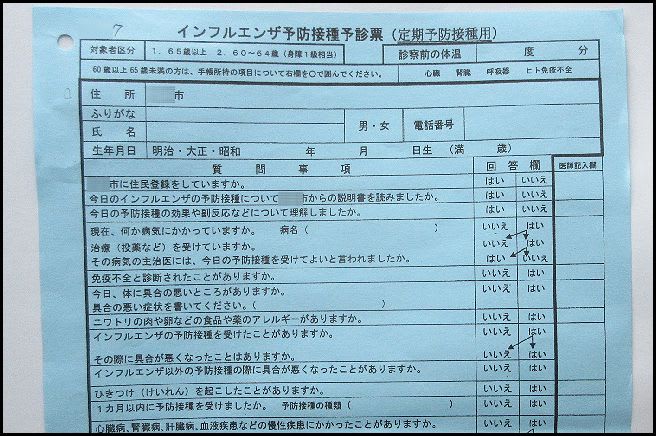 7
インフルエンザ予防接種予診票（定期予防接種用）
対象者区分 1．65歳以上 2．60～64歳（身障1級相当） 診察前の体温 度 分
60歳以上65歳未満の方は、手帳所持の項目について右欄を○で囲んでください。 心臓 腎臓 呼吸器 ヒト免疫不全
住所 市
ふりがな
氏名 男・女 電話番号
生年月日 明治・大正・昭和 年 月 日生（満 歳）
質問事項 回答欄 医師記入欄
市に住民登録をしていますか。 はい いいえ
今日のインフルエンザの予防接種について 市からの説明書を読みましたか。 はい いいえ
今日の予防接種の効果や副反応などについて理解しましたか。 はい いいえ
現在、何か病気にかかっていますか。 病名（ ） いいえ はい
治療（投薬など）を受けていますか。 いいえ はい
その病気の主治医には、今日の予防接種を受けてよいと言われましたか。 はい いいえ
免疫不全と診断されたことがありますか。 いいえ はい
今日、体に具合の悪いところがありますか。 いいえ はい
具合の悪い症状を書いてください。（ ）
ニワトリの肉や卵などの食品や薬のアレルギーがありますか。 いいえ はい
インフルエンザの予防接種を受けたことがありますか。 いいえ はい
その際に具合が悪くなったことはありますか。 いいえ はい
インフルエンザ以外の予防接種の際に具合が悪くなったことがありますか。 いいえ はい
ひきつけ（けいれん）を起こしたことがありますか。 いいえ はい
1カ月以内に予防接種を受けましたか。 予防接種の種類（ ） いいえ はい
心臓病、腎臓病、肝臓病、血液疾患などの慢性疾患にかかったことがありますか。 いいえ はい